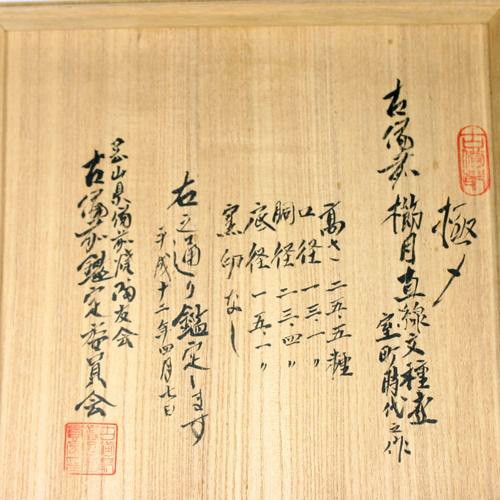 極メ
古備前 櫛目直線文種壺
室町時代之作
高さ 二五・五糎
口径 一三・一〃
胴径 二三・四〃
底径 一五・一〃
窯印なし
右之通り鑑定します
平成十二年四月七日
岡山県備前焼陶友会
古備前鑑定委員会